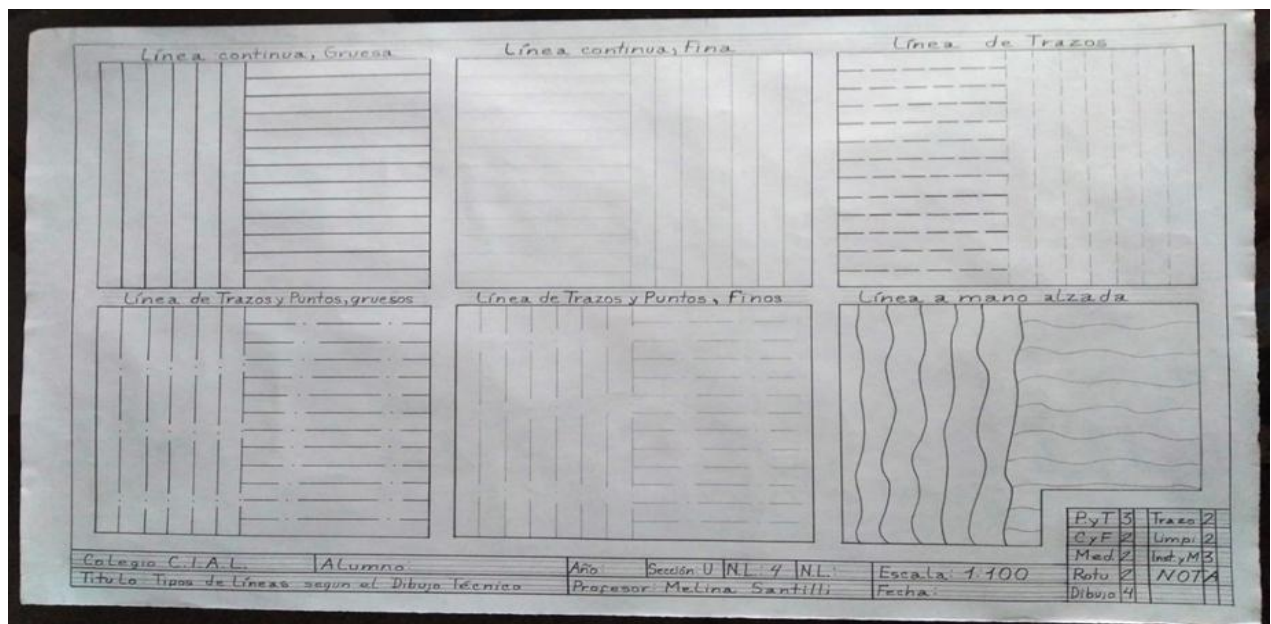 Línea continua, Gruesa
Línea continua, Fina
Línea de Trazos
Línea de Trazos y Puntos, gruesos
Línea de Trazos y Puntos, Finos
Línea a mano alzada
P.yT 3 Trazo 2
CyF 2 Limpi 2
Med. 2 Inst y M 3
Rotu 2 NOTA
Dibujo 4
Colegio C.I.A.L. Alumno: Año: Sección: U N.L: 4 N.L: Escala: 1:100
Titulo Tipos de Líneas segun el Dibujo Técnico Profesor: Melina Santilli Fecha: